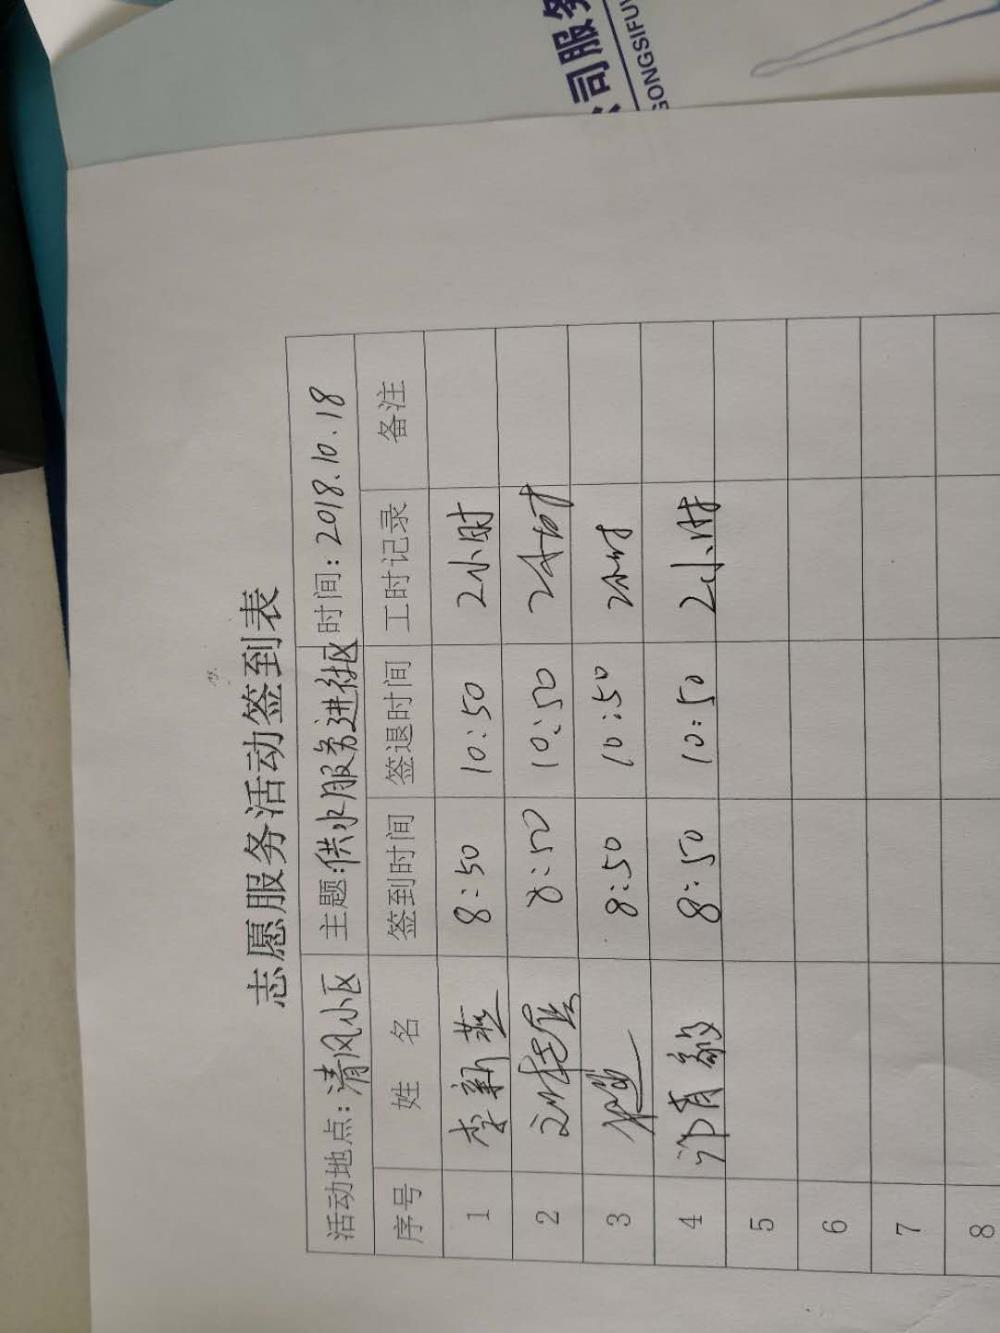 司服务
GONGSIFU
志愿服务活动签到表
活动地点：清风小区 主题：供水服务进社区 时间：2018.10.18
序号 姓 名 签到时间 签退时间 工时记录 备注
1 李新燕 8:50 10:50 2小时
2 8:50 10:50 2小时
3 8:50 10:50 2小时
4 许育毅 8:50 10:50 2小时
5
6
7
8